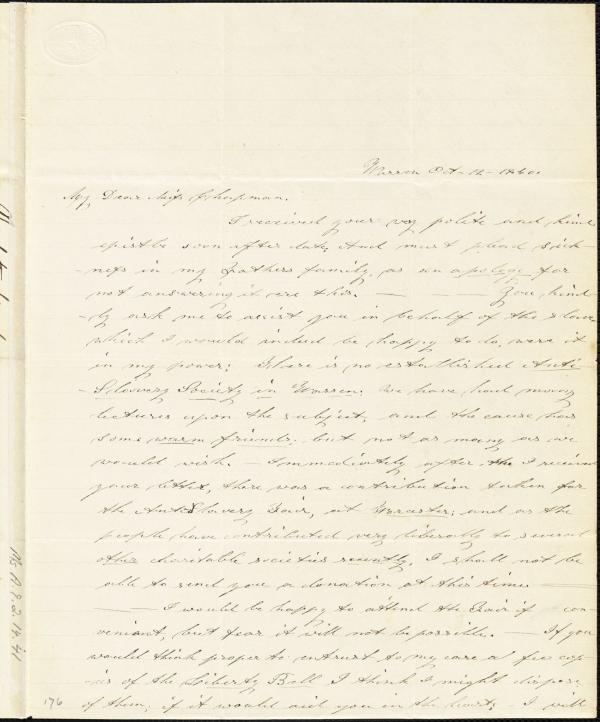 Warren Oct - 12 - 1840.
My Dear Miss Chapman.
I received your very polite and kind
epistle soon after date, And must plead sick-
-ness in my Fathers family, as an apology for
not answering it ere this. — — You kind-
-ly ask me to assist you in behalf of the slave
which I would indeed be happy to do, were it
in my power; There is no established Anti
-Slavery Society in Warren. We have had many
lectures upon the subject, and the cause has
some warm friends, but not as many as we
would wish. — Immediately after the I received
your letter, there was a contribution taken for
the AntiSlavery Fair, at Worcester; and as the
people have contributed very liberally to several
other charitable societies recently, I shall not be
able to send you a donation at this time —
— I would be happy to attend the Fair if con-
veniant, but fear it will not be possible. — If you
would think proper to entrust to my care a few cop-
-ies of the Liberty Bell I think I might dispose
of them, if it would aid you in the least; - I will
Ms. A.9.2.14.41
176